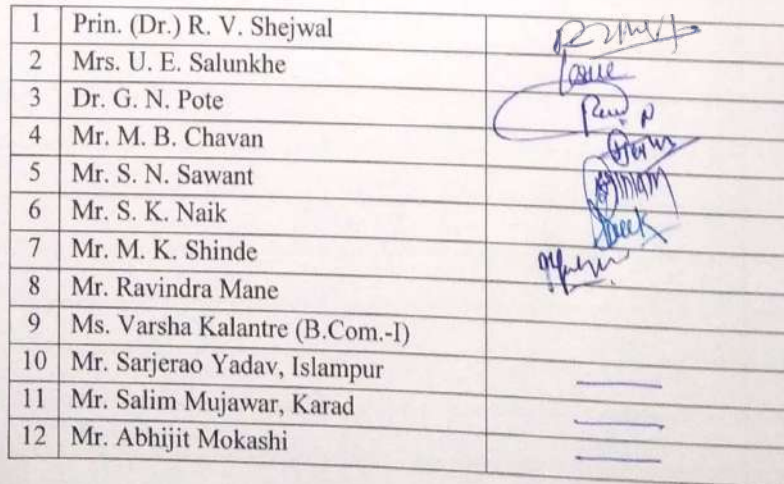 1 Prin. (Dr.) R. V. Shejwal
2 Mrs. U. E. Salunkhe
3 Dr. G. N. Pote
4 Mr. M. B. Chavan
5 Mr. S. N. Sawant
6 Mr. S. K. Naik
7 Mr. M. K. Shinde
8 Mr. Ravindra Mane
9 Ms. Varsha Kalantre (B.Com.-I)
10 Mr. Sarjerao Yadav, Islampur
11 Mr. Salim Mujawar, Karad
12 Mr. Abhijit Mokashi